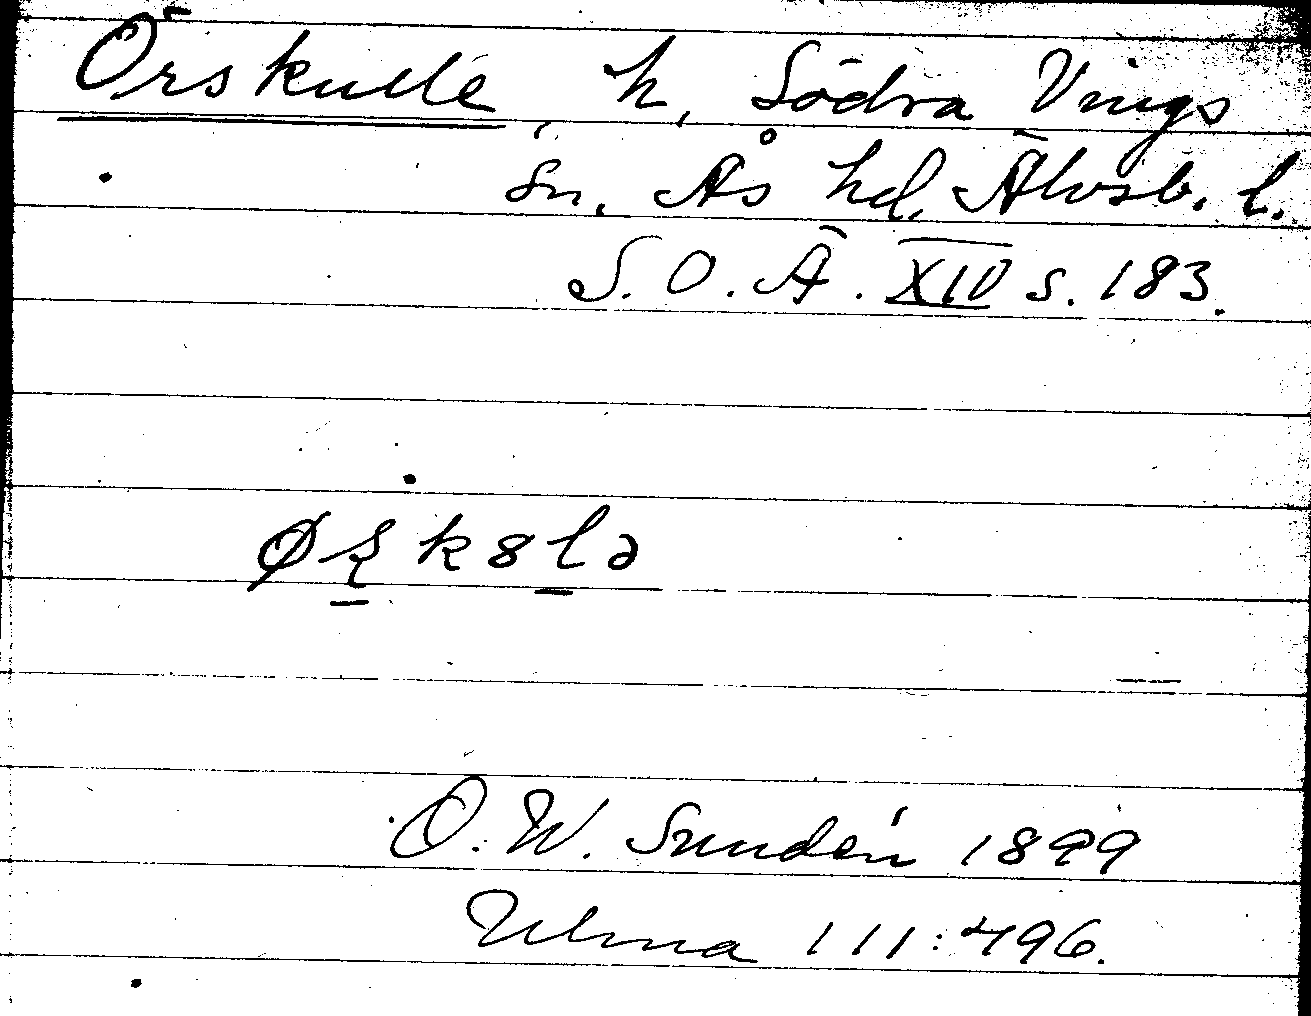 Örskulle, h, Södra Vings
sn. Ås hd. Älvsb. l.
S. O. Ä. XIV s. 183.
k8lə
O. W. Sundén 1899
Ulma 111:496.